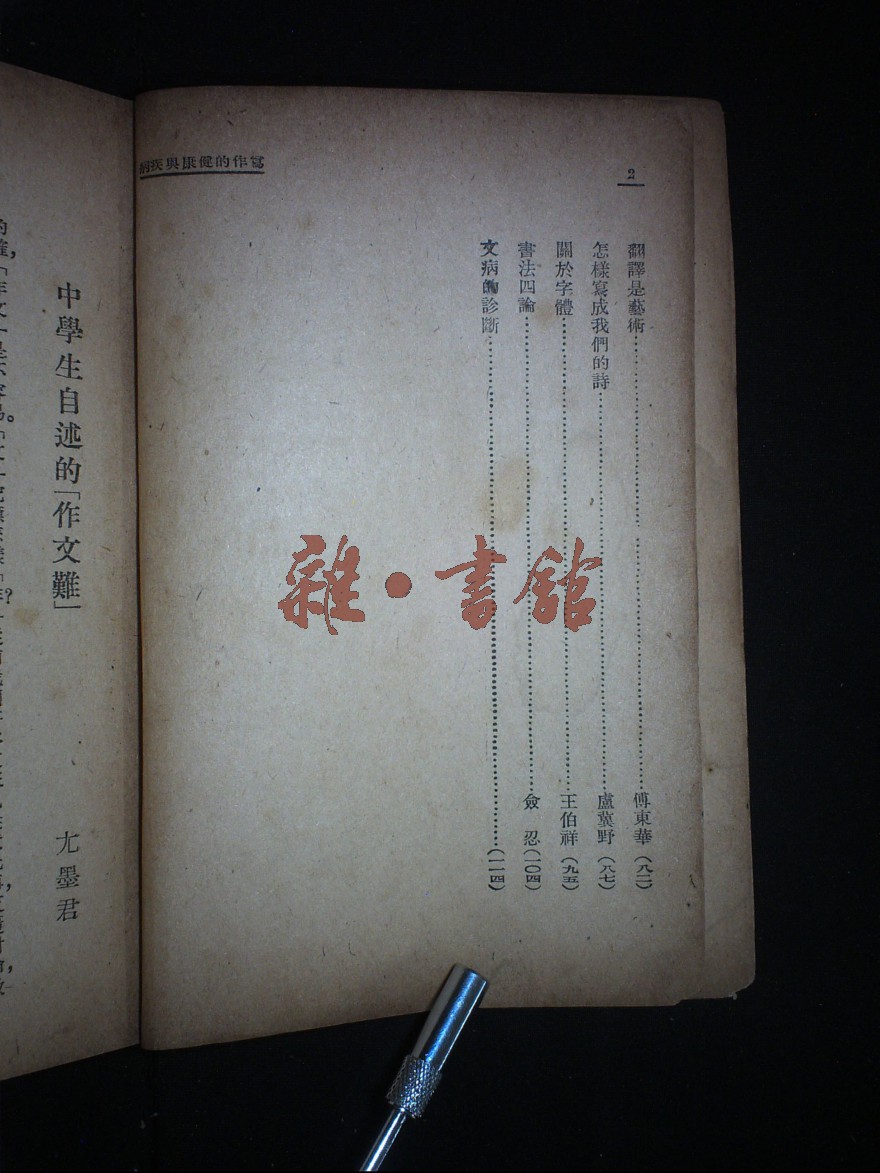 病疾與康健的作寫
2
翻譯是藝術……傅東華(八二)
怎樣寫成我們的詩……盧冀野(八七)
關於字體……王伯祥(九五)
書法四論……僉忍(一〇四)
文病的診斷……(一一四)
中學生自述的「作文難」
尤墨君
雜·書館